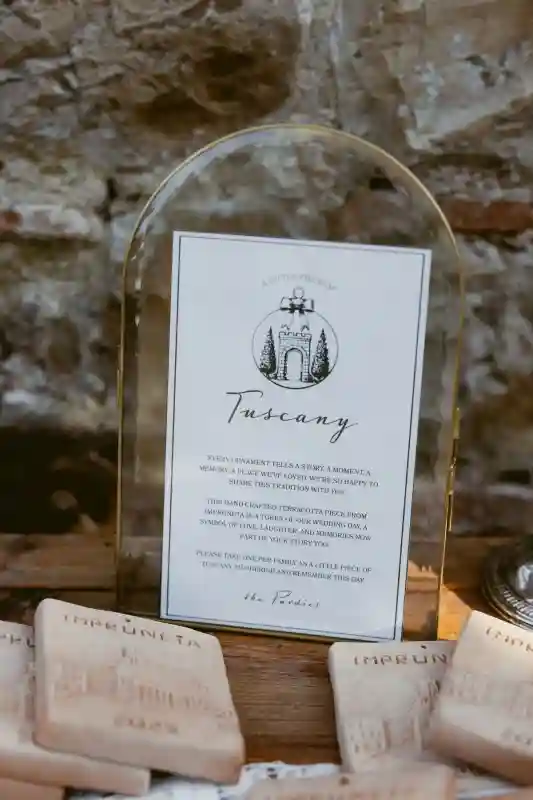 Tuscany
EVERY ORNAMENT TELLS A STORY, A MOMENT, A
MEMORY, A PLACE WE'VE LOVED. WE'RE SO HAPPY TO
SHARE THIS TRADITION WITH YOU.
THIS HAND-CRAFTED TERRACOTTA PIECE FROM
IMPRUNETA IS A TOKEN OF OUR WEDDING DAY, A
SYMBOL OF LOVE, LAUGHTER, AND MEMORIES NOW
PART OF YOUR STORY TOO.
PLEASE TAKE ONE PER FAMILY, AS A LITTLE PIECE OF
TUSCANY TO CHERISH AND REMEMBER THIS DAY.
the
IMPRUNETA
IMPRUN